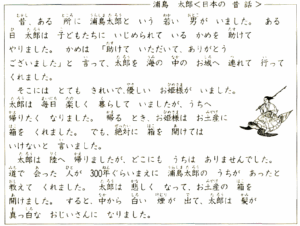 浦島 太郎<日本の 昔 話>
昔、ある 所に 浦島太郎と いう 若い 男が いました。 ある
日 太郎は 子どもたちに いじめられて いる かめを 助けて
やりました。 かめは 「助けて いただいて、ありがとう
ございました」と 言って、太郎を 海の 中の お城へ 連れて 行って
くれました。
そこには とても きれいで、優しい お姫様が いました。
太郎は 毎日 楽しく 暮らして いましたが、うちへ
帰りたく なりました。 帰る とき、お姫様は お土産に
箱を くれました。 でも、絶対に 箱を 開けては
いけないと 言いました。
太郎は 陸へ 帰りましたが、どこにも うちは ありませんでした。
道で 会った 人が 300年ぐらいまえに 浦島太郎の うちが あったと
教えて くれました。 太郎は 悲しく なって、お土産の 箱を
開けました。 すると、中から 白い 煙が 出て、太郎は 髪が
真っ白な おじいさんに なりました。